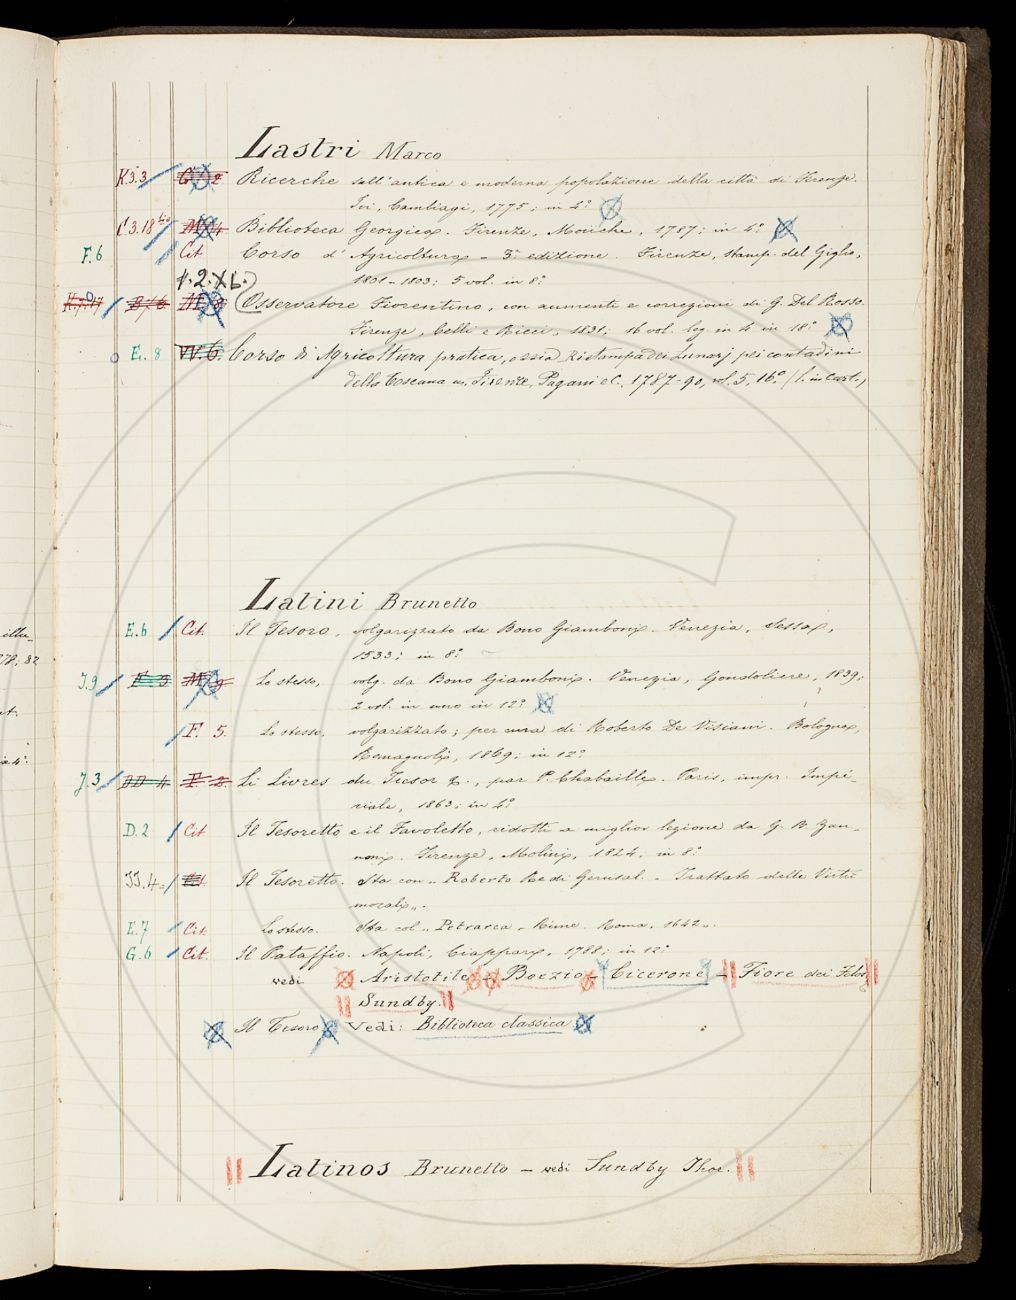 Lastri Marco
K.3.3 Ricerche sull'antica e moderna popolazione della città di Firenze.
Ivi, Cambiagi, 1775; in 4º
C.3.18 Biblioteca Georgica. Firenze, Moücke, 1787; in 4º
F.6 Cit. Corso d'Agricoltura - 3ª edizione. Firenze, stamp. del Giglio,
1801-1803; 5 vol. in 8º
1.2.XL.
Osservatore Fiorentino, con aumenti e correzioni di G. Del Rosso.
Firenze, Celli e Ricci, 1831; 16 vol. leg. in 4 in 18º
E. 8 VV.6. Corso di Agricoltura pratica, ossia Ristampa dei Lunarj pei contadini
della Toscana Firenze, Pagani e C., 1787-90, vol. 5, 16º (l. in cart.)
Latini Brunetto
E.6 Cit. Il Tesoro, volgarizzato da Bono Giamboni. Venezia, Sessa,
1533; in 8º
J.9 Lo stesso, volg. da Bono Giamboni. Venezia, Gondoliere, 1839;
2 vol. in uno in 12º
F. 5. Lo stesso, volgarizzato; per cura di Roberto De Visiani. Bologna,
Romagnoli, 1869; in 12º
J.3 BB 4 F. 2. Li Livres dou Tresor &., par P. Chabaille. Paris, impr. Impé-
riale, 1863; in 4º
D.2 Cit Il Tesoretto e il Favoletto, ridotti a miglior lezione da G. B. Zan-
noni. Firenze, Molini, 1824; in 8º
JJ.4. Il Tesoretto. Sta con „Roberto Re di Gerusal. - Trattato delle Virtù
morali„.
E.7 Cit. Lo stesso. Sta col „Petrarca - Rime. Roma, 1642„.
G.6 Cit. Il Pataffio. Napoli, Chiappari, 1788; in 12º
vedi Aristotile - Boezio - Cicerone - Fiore dei Filos
Sundby.
Il Tesoro Vedi: Biblioteca classica
Latinos Brunetto - vedi Sundby Thor.